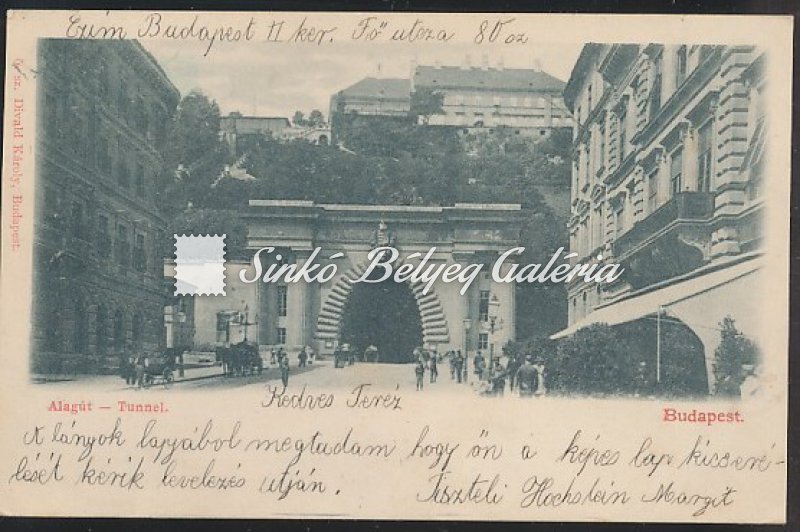 Czím Budapest II ker. Fő utcza 80 sz
5 sz. Divald Károly, Budapest.
Sinkó Bélyeg Galéria
Alagút — Tunnel.
Budapest.
Kedves Teréz
A lányok lapjából megtudam hogy ön a képes lap kicseré-
lését kérik levelezés utján.
Tiszteli Hochslein Margit